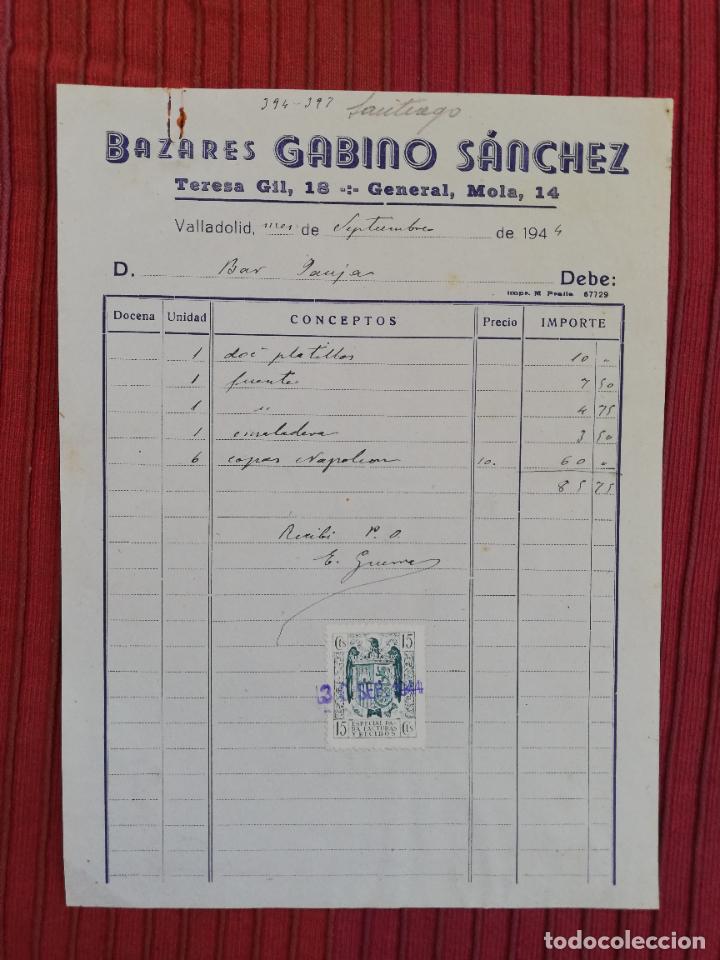 394-397 Santiago
BAZARES GABINO SÁNCHEZ
Teresa Gil, 18 -:- General, Mola, 14
Valladolid, mes de Septiembre de 1944
D. Bar Debe:
Impr. M Prelle 67729
Docena Unidad CONCEPTOS Precio IMPORTE
1 doc platillos 10 "
1 fuente 7 50
1 " 4 75
1 ensaladera 3 50
6 copas Napoleon 10. 60 "
85 75
Recibi P. O.
E. Guerra
Cts 15
SEP 1944
15 ESPECIAL PA- Cts
RA FACTURAS
Y RECIBOS
todocoleccion
todocoleccion.net